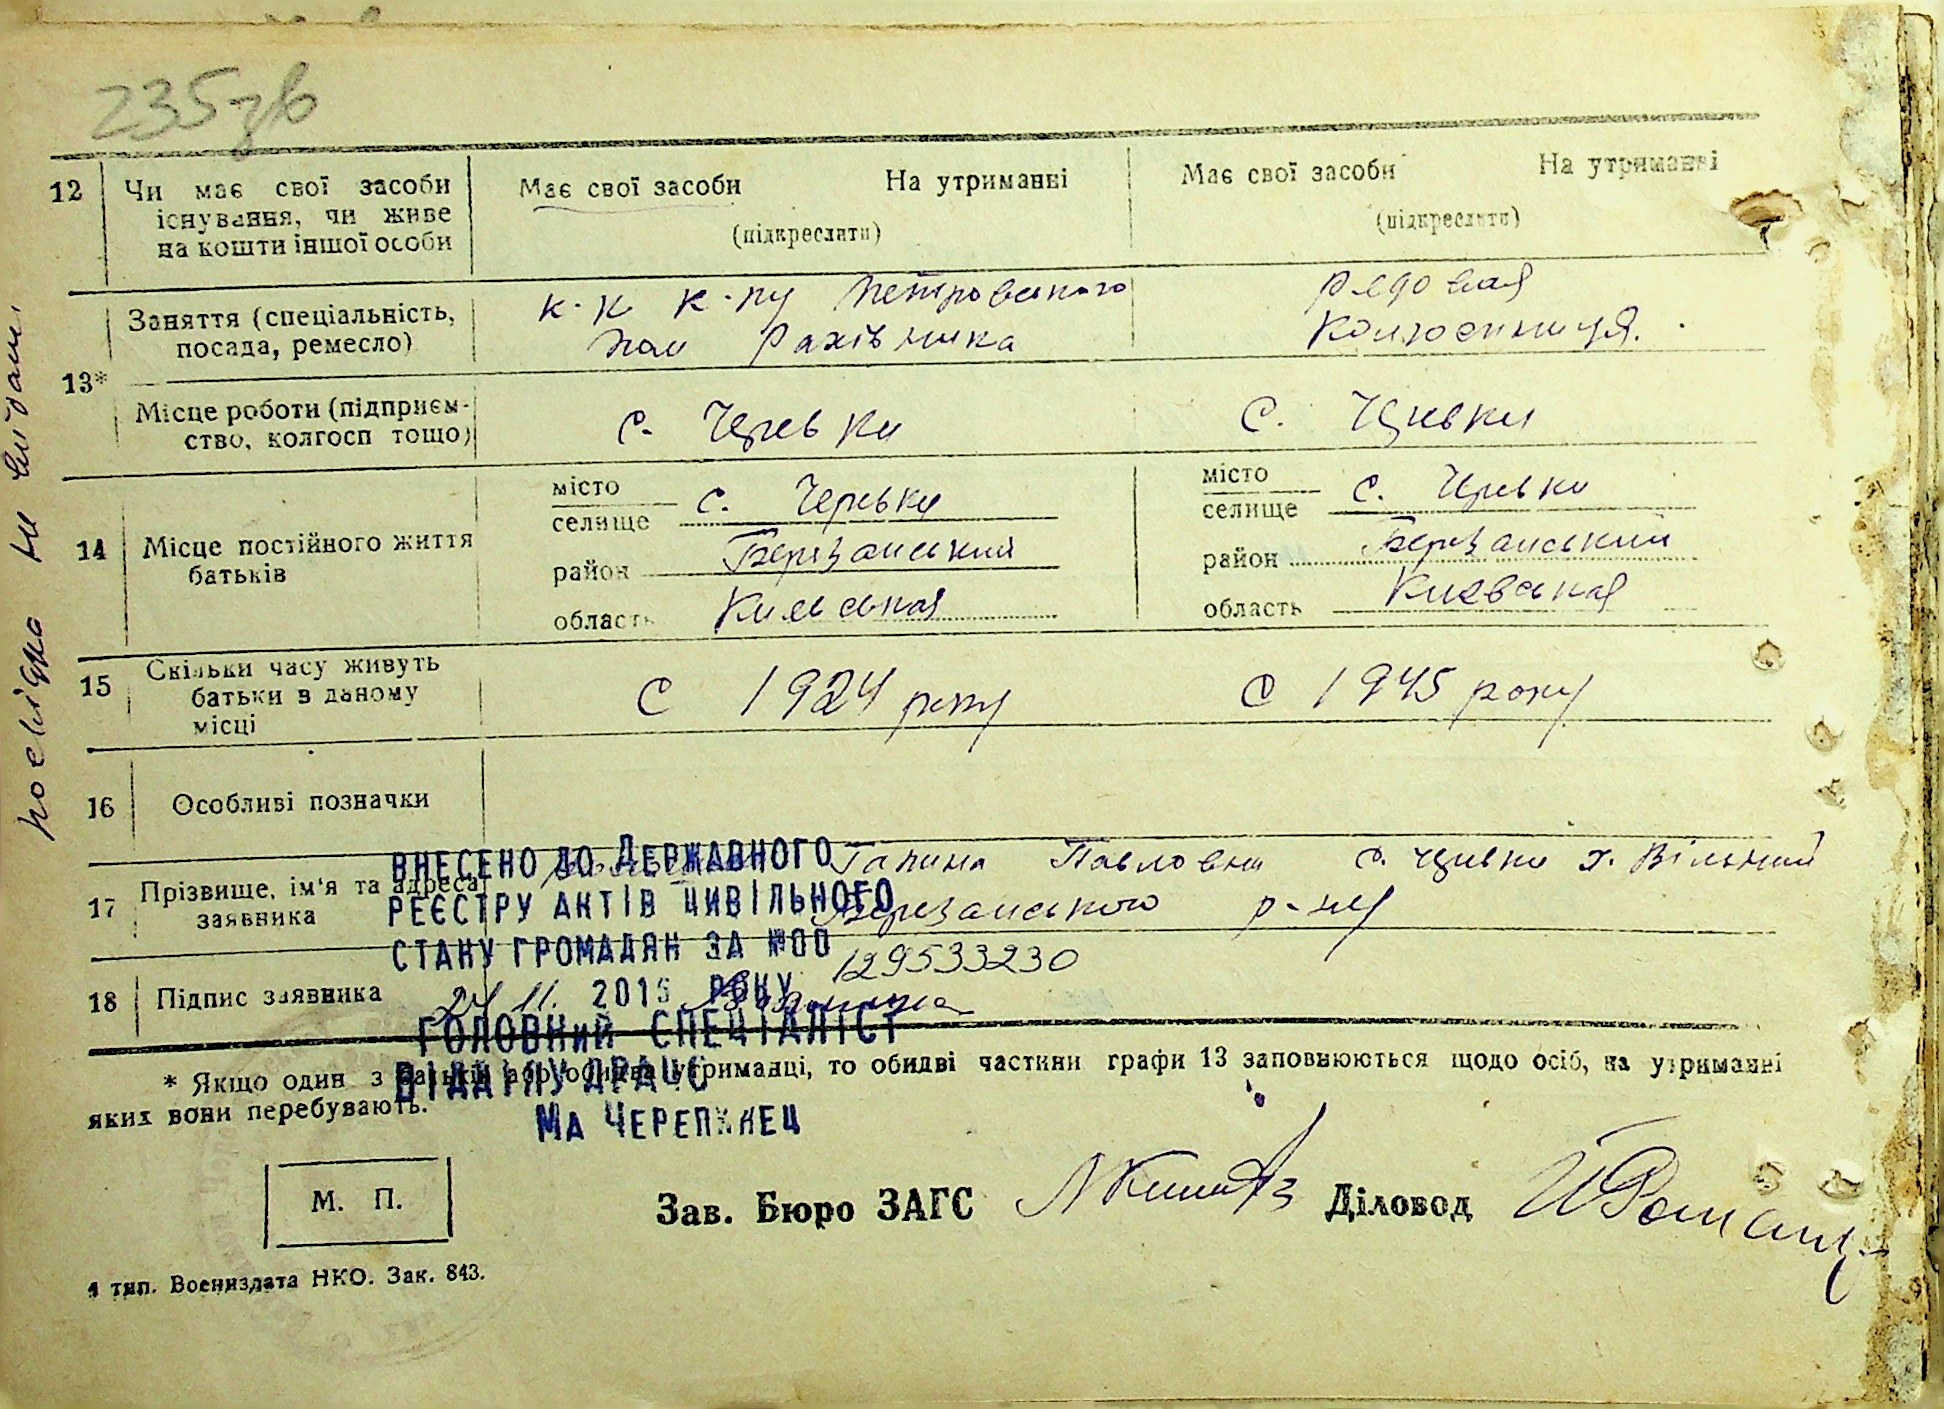 235зв
12 Чи має свої засоби існування, чи живе на кошти іншої особи
Має свої засоби На утриманні
(підкреслити)
Має свої засоби На утриманні
(підкреслити)
13*
Заняття (спеціальність, посада, ремесло)
к-к к-пу Петровського
пом рахівника
рядовая
колгоспниця.
Місце роботи (підприємство, колгосп тощо)
с. Черевки
с. Черевки
14 Місце постійного життя батьків
місто
селище с. Черевки
район Березанський
область Київськая
місто
селище с. Черевки
район Березанський
область Киевськая
15 Скільки часу живуть батьки в даному місці
С 1924 року
С 1945 року
16 Особливі позначки
17 Прізвище, ім'я та адреса заявника
Галина Павловна с. Черевки х. Вільний
Березанського р-ну
18 Підпис заявника
ВНЕСЕНО ДО ДЕРЖАВНОГО
РЕЄСТРУ АКТІВ ЦИВІЛЬНОГО
СТАНУ ГРОМАДЯН ЗА №00
129533230
24 11. 2015 РОКУ
ГОЛОВНИЙ СПЕЦІАЛІСТ
ВІДДІЛУ ДРАЦС
МА ЧЕРЕПИНЕЦ
* Якщо один з батьків або обидва утриманці, то обидві частини графи 13 заповнюються щодо осіб, на утриманні
яких вони перебувають.
М. П.
Зав. Бюро ЗАГС
Діловод
4 тип. Воениздата НКО. Зак. 843.